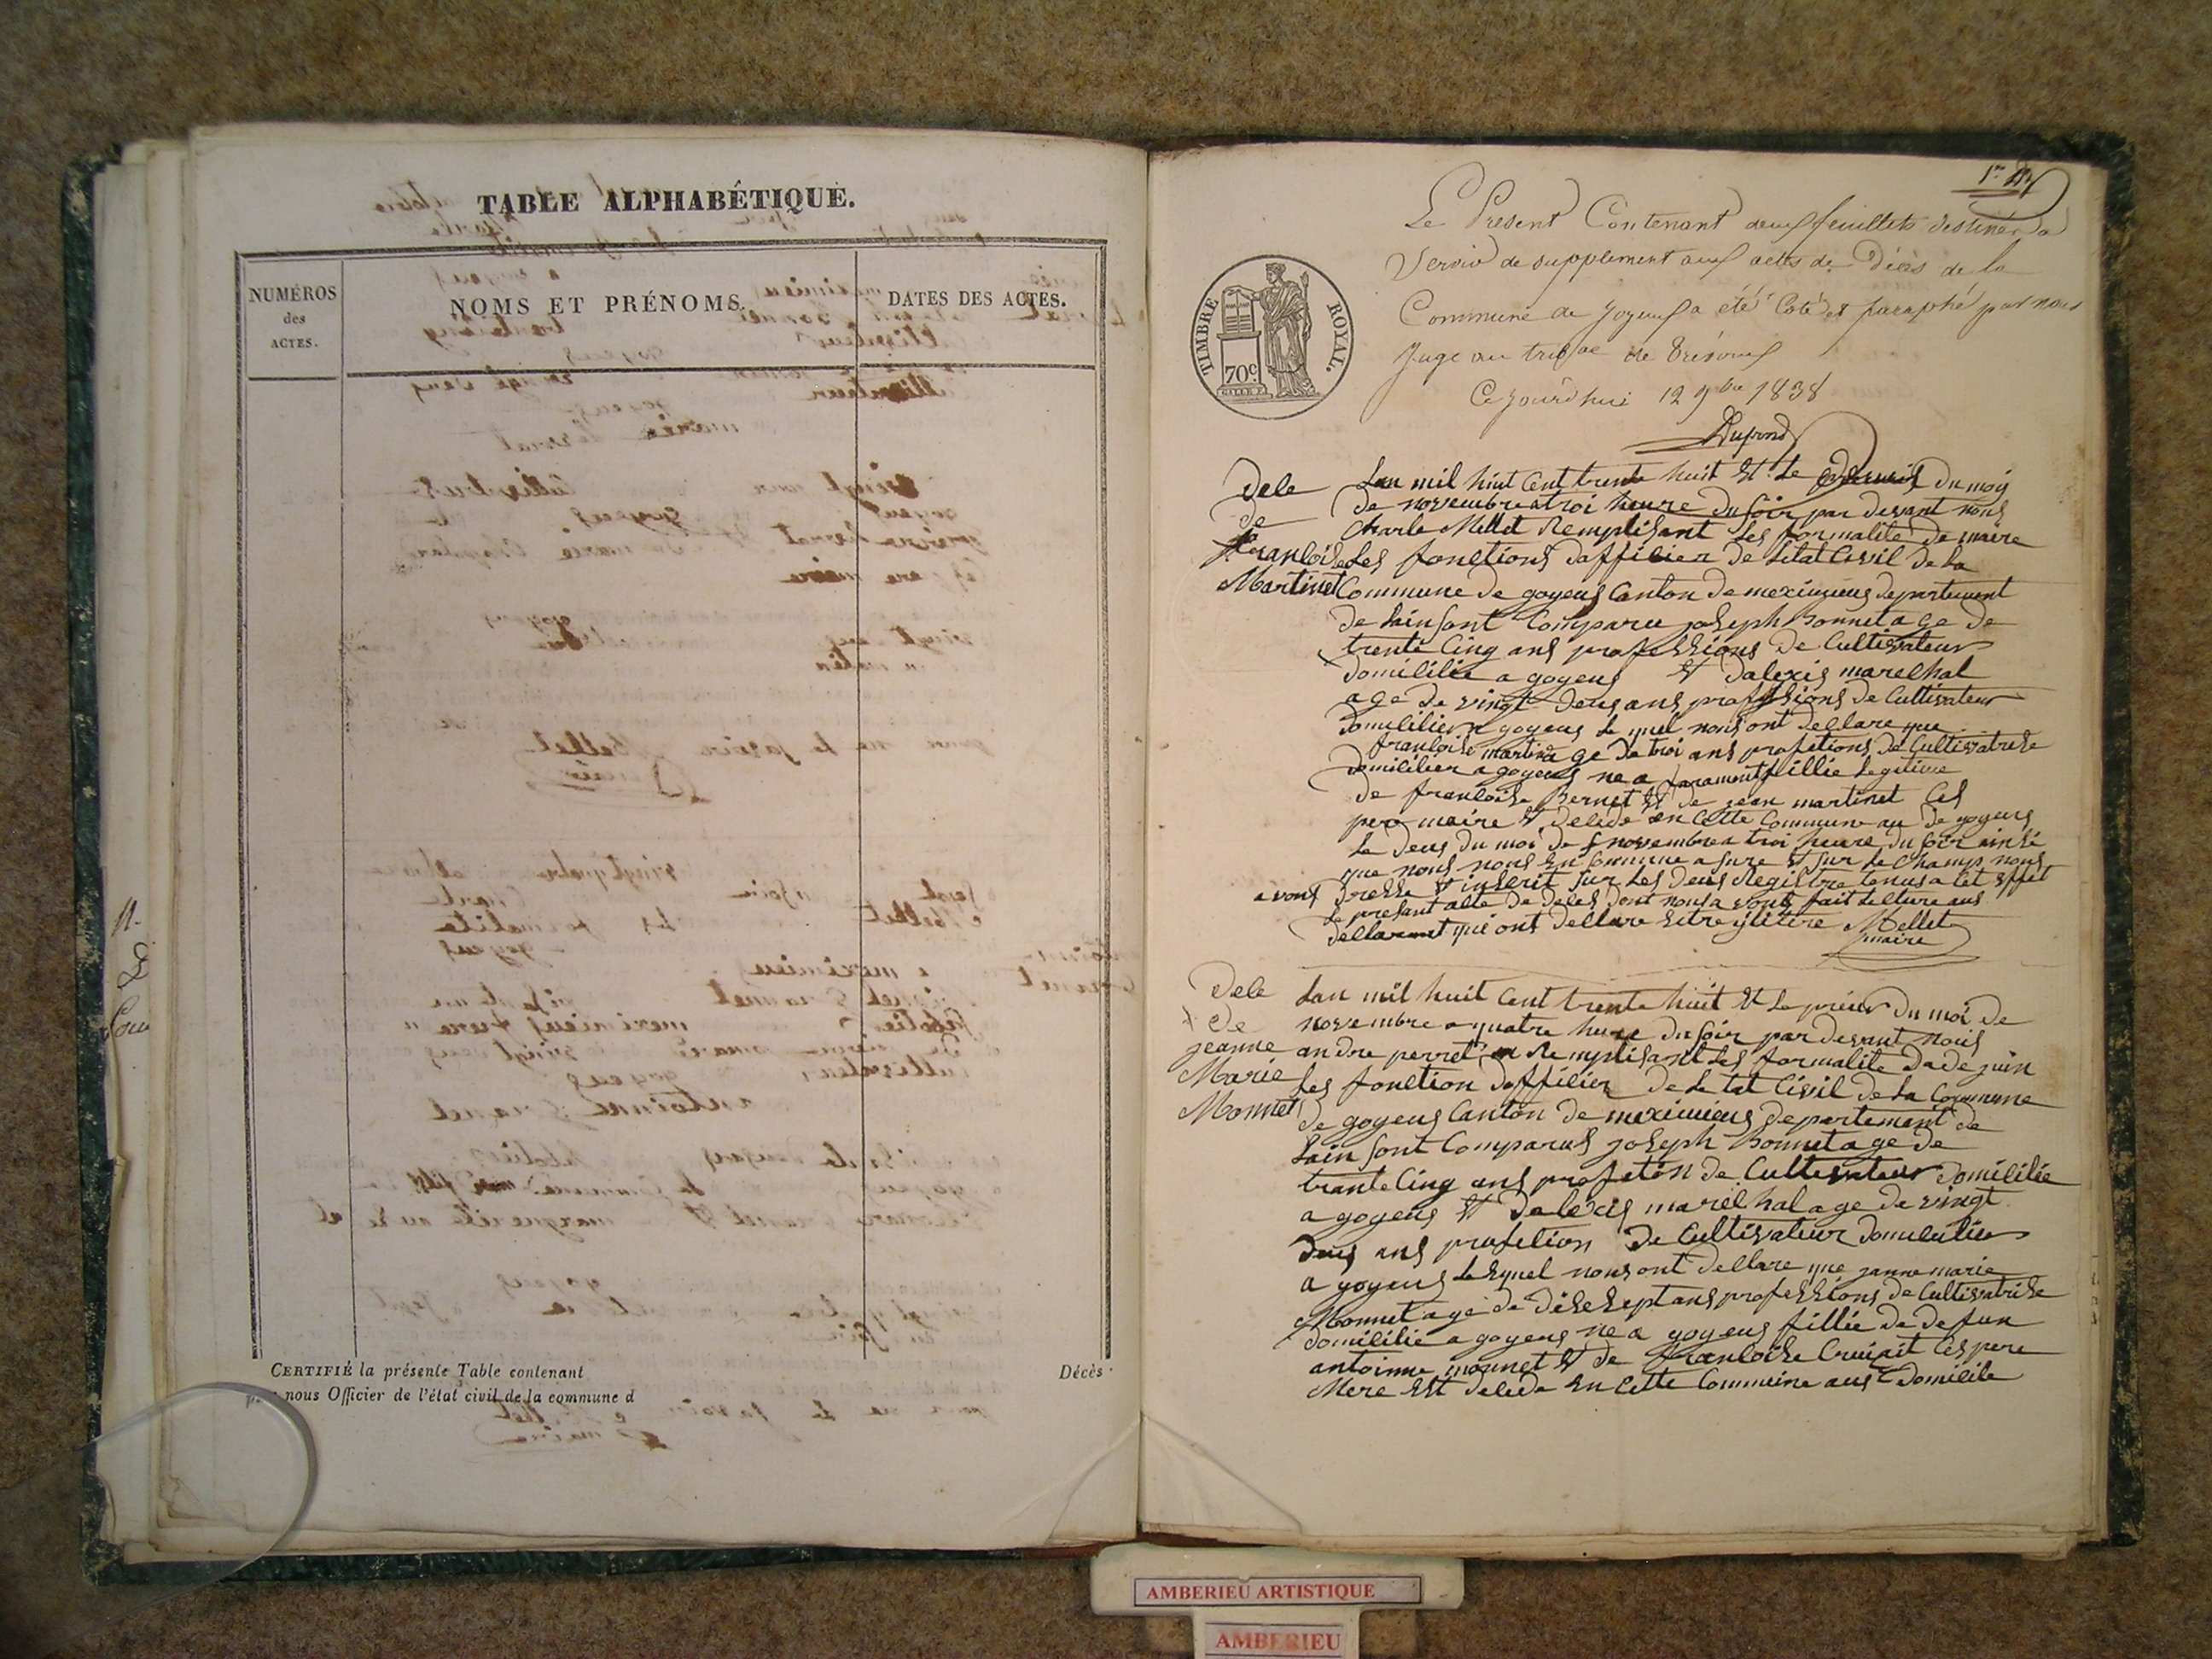 TABLE ALPHABÉTIQUE.
NUMÉROS
des
ACTES.
NOMS ET PRÉNOMS.
DATES DES ACTES.
CERTIFIÉ la présente Table contenant
Décès
nous Officier de l'état civil de la commune d
1er
Le Present Contenant deux feuillets destinés a
Servir de supplement aux actes de Décès de la
Commune de Joyeux a été Coté et paraphé par nous
Juge au tribal de Trévoux
Ce jourd'hui 12 9bre 1838
Dupond
TIMBRE
ROYAL.
70c.
Dele
de
franloise
Martinet
Lan mil huit Cent trente huit Et Le Du moy
De novembre a troi heure Du soir par devant nous
Charle Mellet Remplisant Les formalite De maire
Les fonctions Daffilier De Letat Civil De La
Commune De goyeus Canton De meximieus Departement
De Lain font Comparu joseph bonnet age De
trente Cinq ans professions De Cultivateur
Domililie a goyeus Et Dalexis marelhal
age De vingt Deus ans professions De Cultivateur
Domililier a goyeus Le quel nous ont Dellare que
franloise martin age De troi ans profetions De Cultivatrise
Domililier a goyeus ne a faramont fillie Legetime
De franloise Bernet Et De jean martinet Les
pere maire Et Delede en Cette Commune au De goyeus
Le Deus Du moi De novembre a troi heure Du soir ainsi
que nous nous En somme asure Et sur Le Champ nous
avons Dresse Et inscrit sur Les Deus Registre tenus a Cet Effet
Le presant alte De Deles Dont nous avons fait Lelture aus
Dellarant qui ont Dellare Letre Mellet
maire
Dele
De
jeanne
Marie
Monnet
Lan mil huit Cent trente huit Et Le Du moi De
novembre a quatre hure Du soir par Devant nous
andre perret Remplisant Les formalite Dadejuin
Les fonction Daffilier De Le tat Civil De La Commune
De goyeus Canton De meximieus Departement De
Lain font Comparus joseph bonnet age De
trante Cinq ans De Cultivateur Domililie
a goyeus Et Dalexis marelhal age De vingt
Deus ans profetion De Cultivateur Domililier
a goyeus Lesquel nous ont Dellare que janne marie
Monnet age De Dise Sept ans professions De Cultivatrise
Domililie a goyeus ne a goyeus fillie De Defun
antoinne monnet Et De franloise Les pere
Mere Est Delede En Cette Commune aus Domicile
AMBERIEU ARTISTIQUE
AMBERIEU